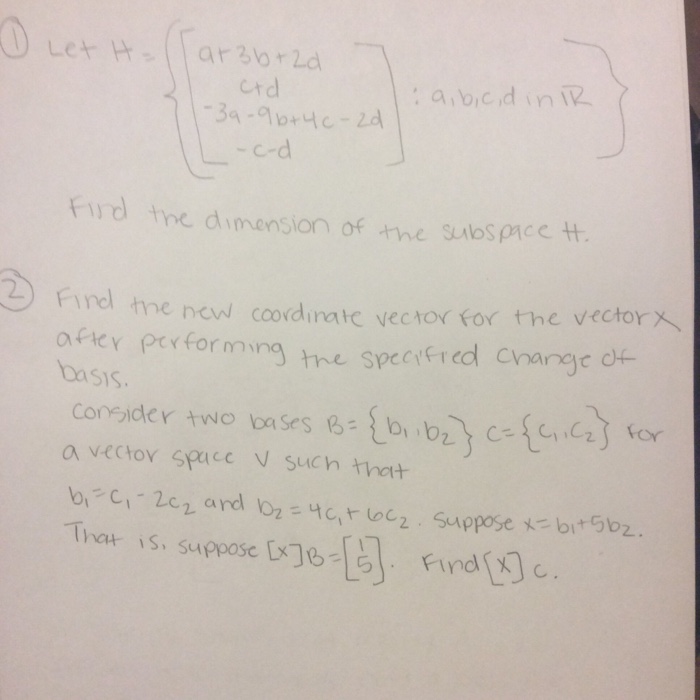 ① Let H = { [ a+3b+2d
c+d
-3a-9b+4c-2d
-c-d ] : a,b,c,d in ℝ }
Find the dimension of the subspace H.
② Find the new coordinate vector for the vector x
after performing the specified change of
basis.
Consider two bases B = {b₁,b₂} C = {c₁,c₂} for
a vector space V such that
b₁=c₁-2c₂ and b₂=4c₁+6c₂. Suppose x=b₁+5b₂.
That is, suppose [x]B=[1 5]. Find [x]c.